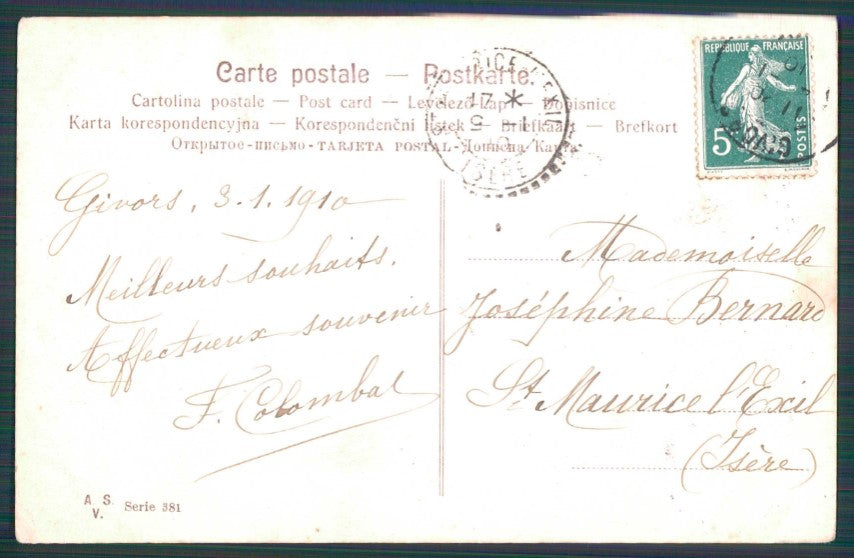 Carte postale — Postkarte.
Cartolina postale — Post card — Levelező-Lap — Dopisnice
Karta korespondencyjna — Korespondenční lístek — Briefkaart — Brefkort
Открытое-письмо — TARJETA POSTAL — Дописна Карта
RÉPUBLIQUE FRANÇAISE
5c
POSTES
ISÈRE
Givors, 3.1.1910
Meilleurs souhaits.
Affectueux souvenir
F. Colombat
Mademoiselle
Joséphine Bernard
St Maurice l'Exil
(Isère)
A. S.
V.
Serie 381